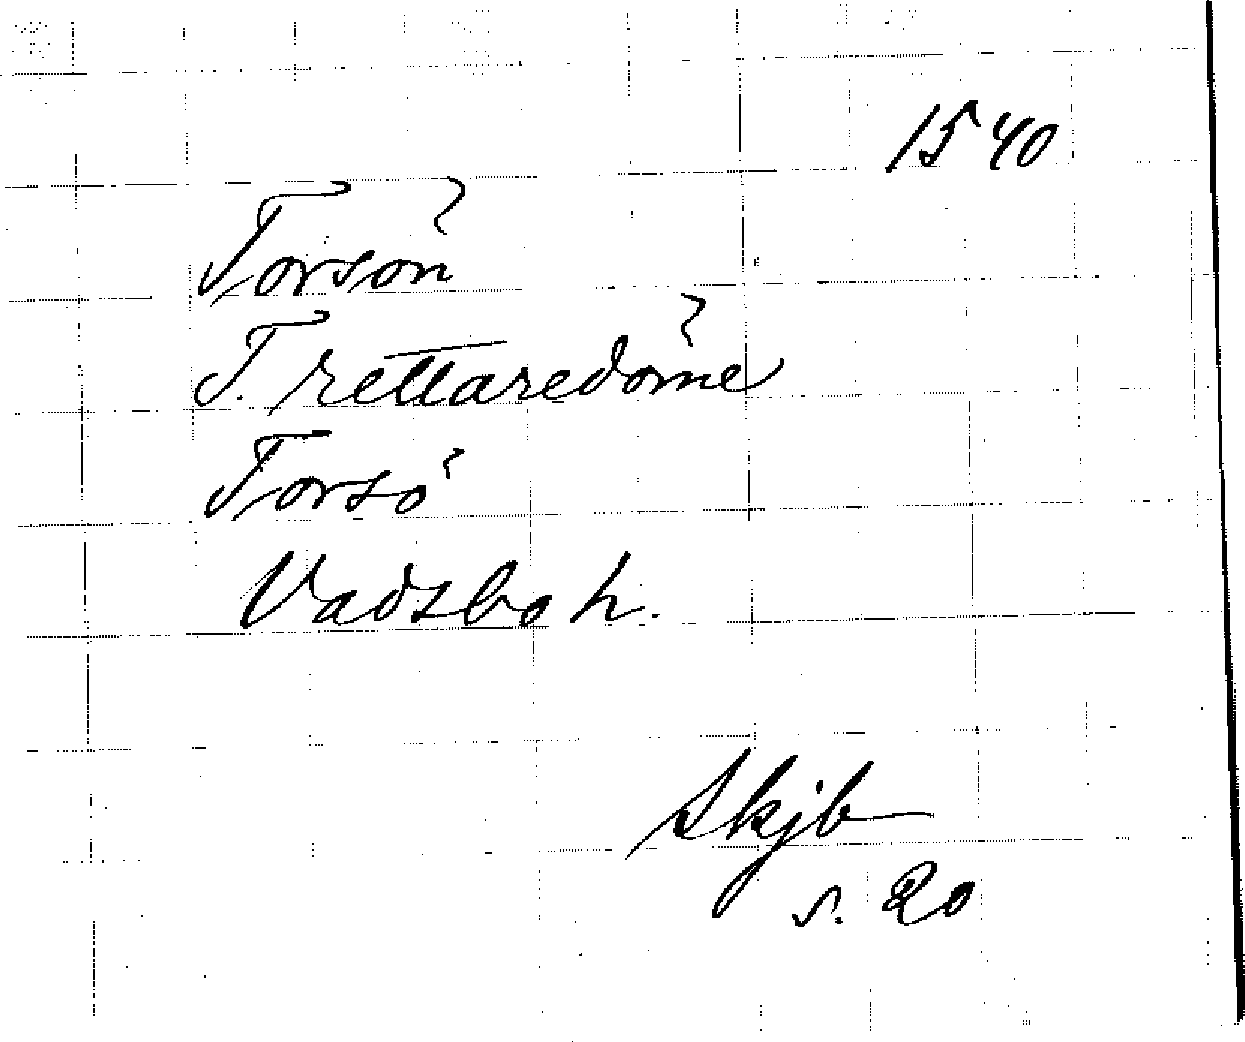 1540
Torsön
T. rettaredöme
Torsö
Vadsbo h.
Skjb
s. 20